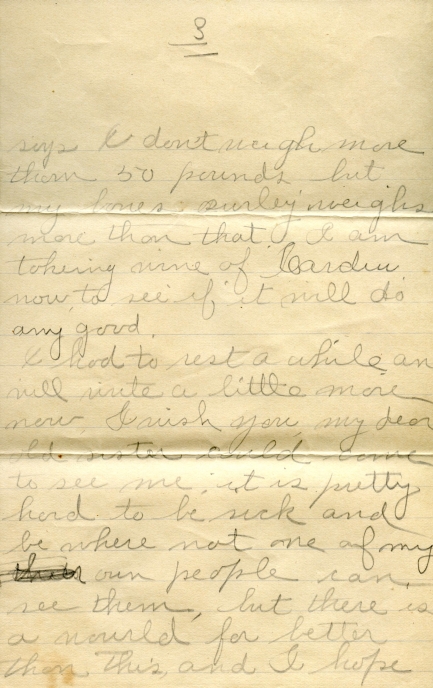 3
says I don't weigh more
than 50 pounds but
my bones surley weighs
more than that. I am
takeing wine of Cardui
now to see if it will do
any good.
I had to rest a while an
will write a little more
now. I wish you my dear
old sister could come
to see me, it is pretty
hard to be sick and
be where not one of my
own people can,
see them, but there is
a world for better
than this, and I hope